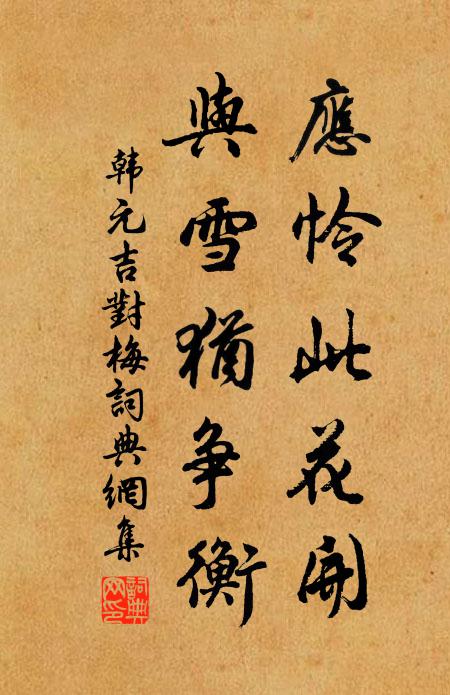 應怜此花開
與雪猶争衡
韩元吉對梅詞典網集
詞典網印